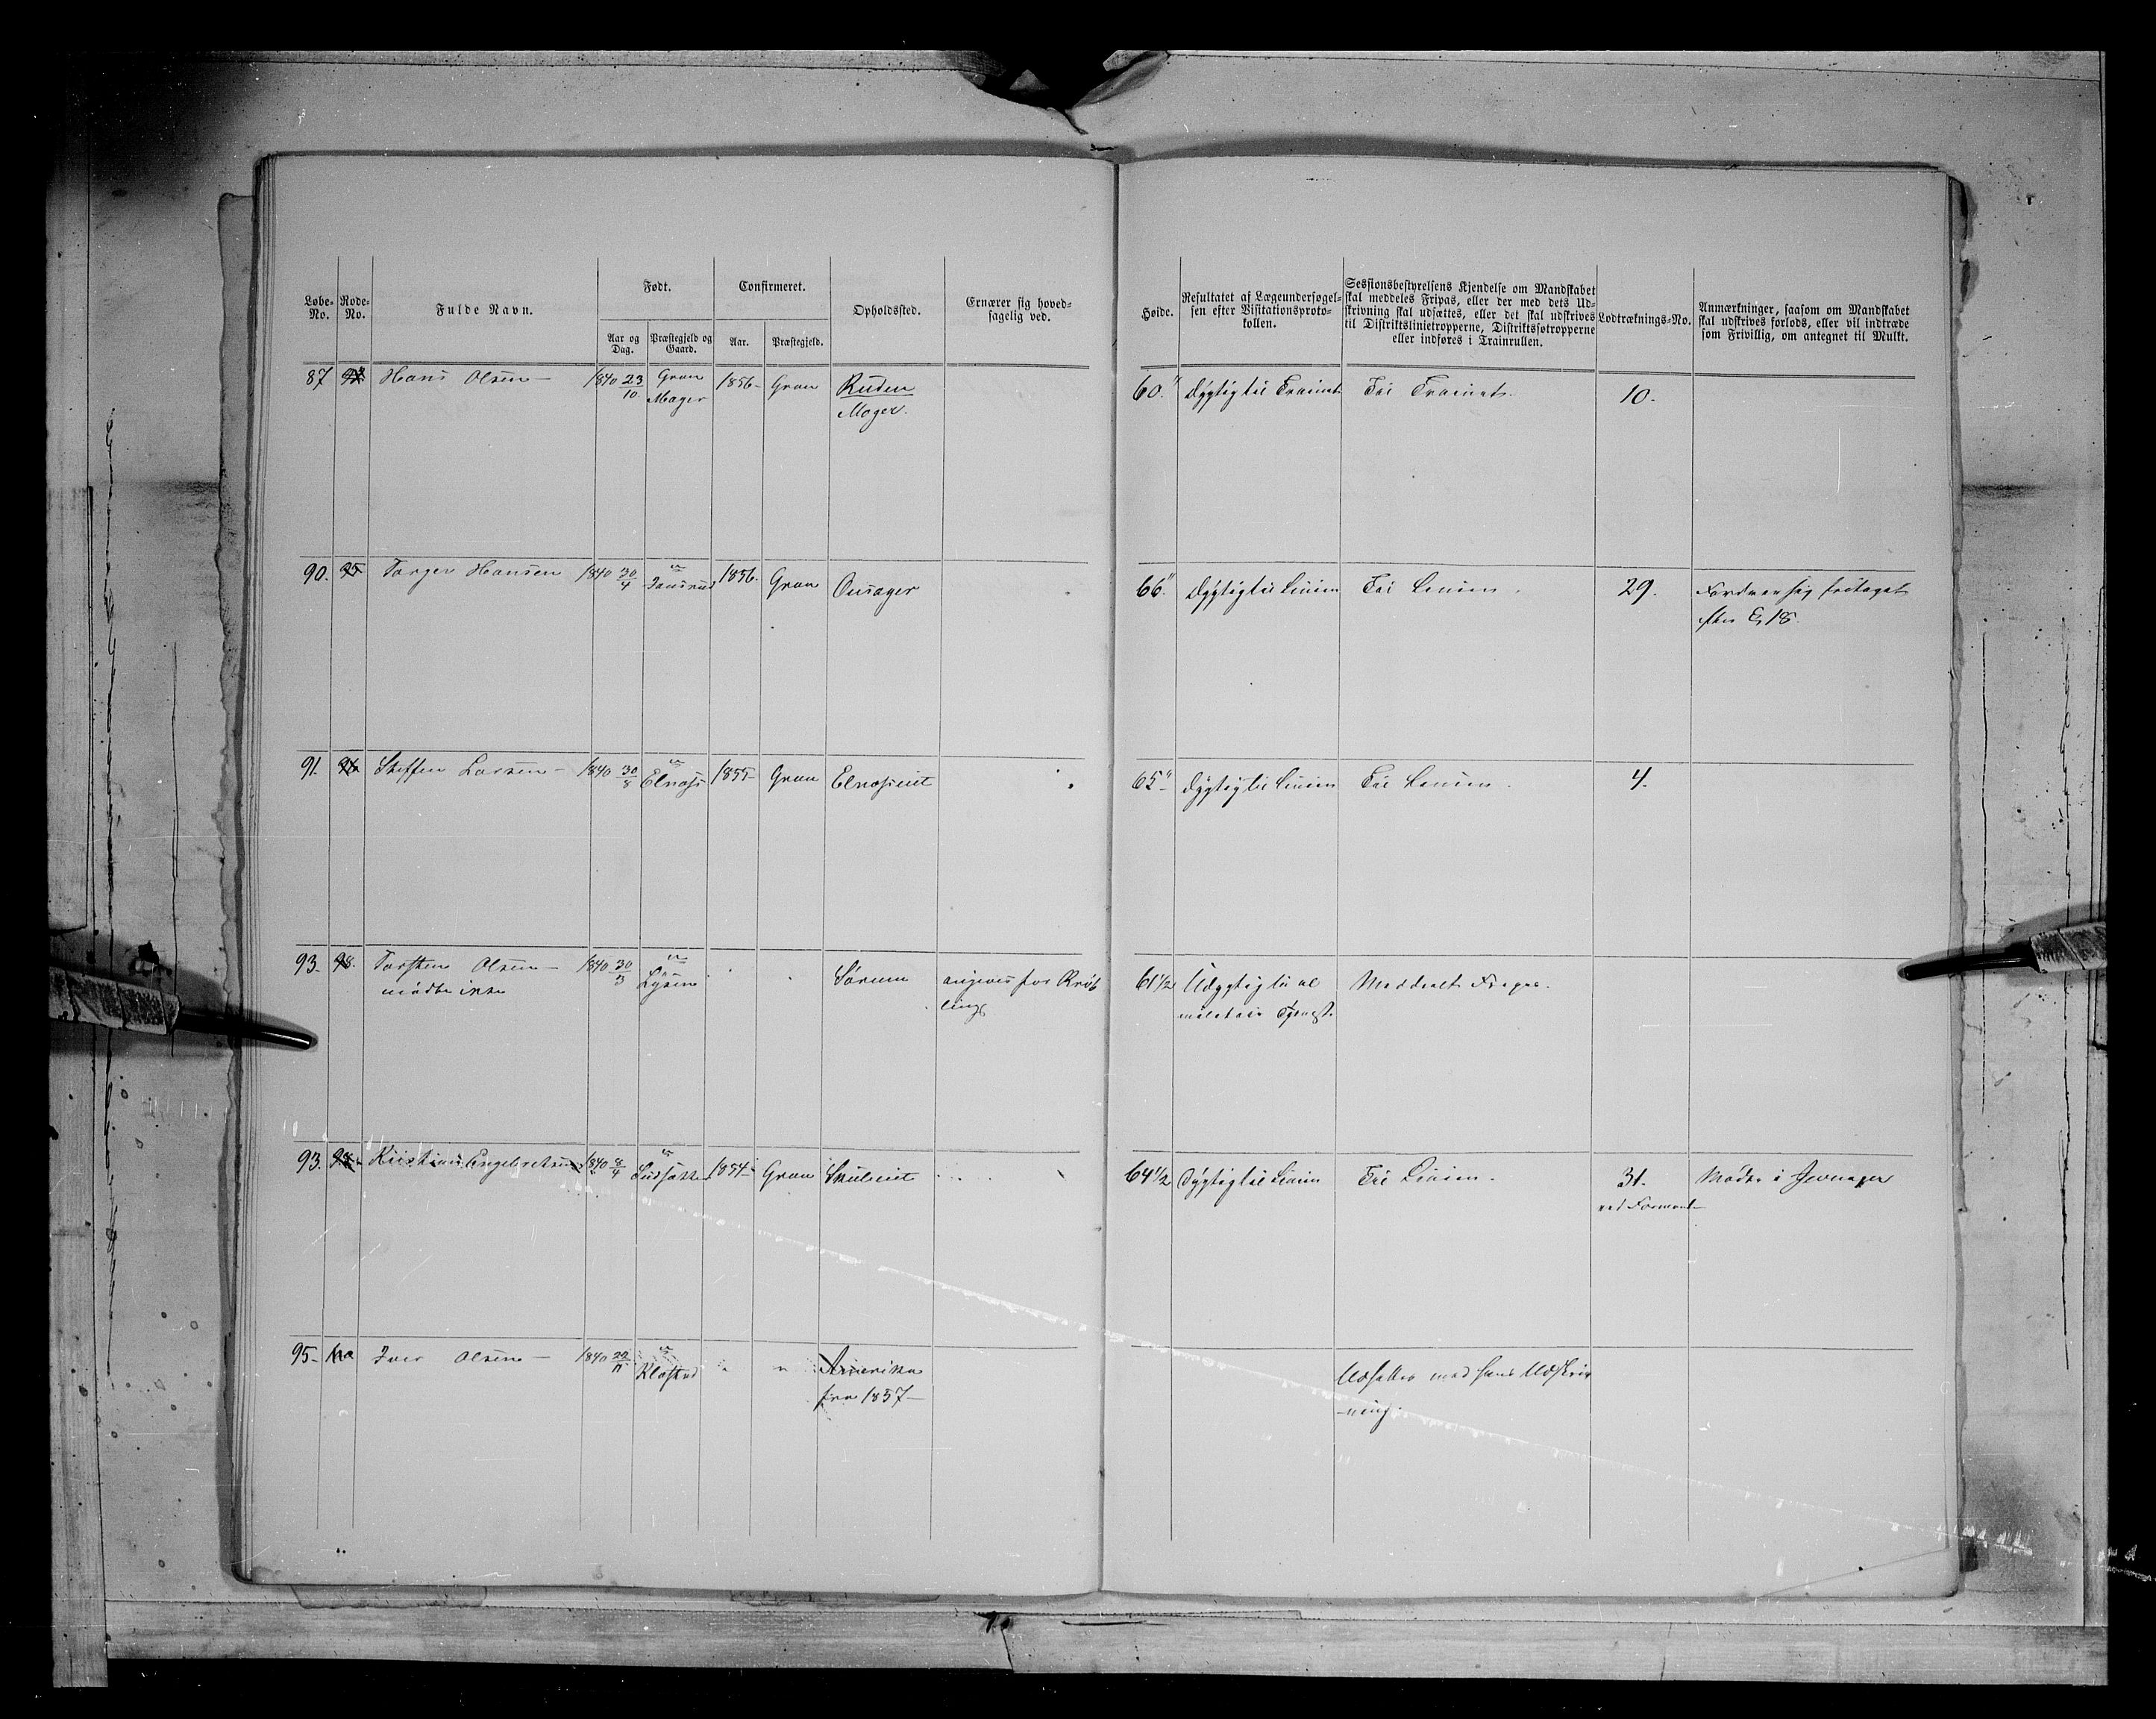 Løbe-No. Rode-No. Fulde Navn. Født. Confirmeret. Opholdssted. Ernærer sig hoved-sagelig ved.
Aar og Dag. Præstegjeld og Gaard. Aar. Præstegjeld.
Høide. Resultatet af Lægeundersøgel-sen efter Visitationsproto-kollen. Sessionsbestyrelsens Kjendelse om Mandskabet skal meddeles Fripas, eller der med dets Ud-skrivning skal udsættes, eller det skal udskrives til Distriktslinietropperne, Distriktsfotropperne eller indføres i Trainrullen. Lodtræknings-No. Anmærkninger, saasom om Mandskabet skal udskrives forlods, eller vil indtræde som Frivillig, om antegnet til Mulkt.
87 Hans Olsen - 1840 23/10 Gran 1856- Gran Ruden 60" Dygtig til Trainet Til Trainet. 10.
Mager Mager.
90. 95 Torger Hansen 1840 30/4 " 1856. Gran Ousager 66" Dygtig til Linien Til Linien. 29. Fordrer sig fritaget
efter § 18.
91. 96 Steffen Larsen - 1840 30/8 " Elnæs 1855- Gran Elnæseiet 65" Dygtig til Linien Til Linien. 4.
93- 98. Torsten Olsen - 1840 30/3 " Lysen Sørum angives for Krøb 61 1/2 Udygtig til al Meddeelt Fripas.
mødte ikke ling militair Tjenest.
93. 98. Kristian Engebretsen 1840 8/4 " 1854- Gran 64 1/2 Dygtig til Linien Til Linien. 31. Mødte i Jevnager
ved Formand
95- Iver Olsen - 1840 " Klæstad " " Amerika Udsættes med hans Udskriv
fra 1857- -ning.